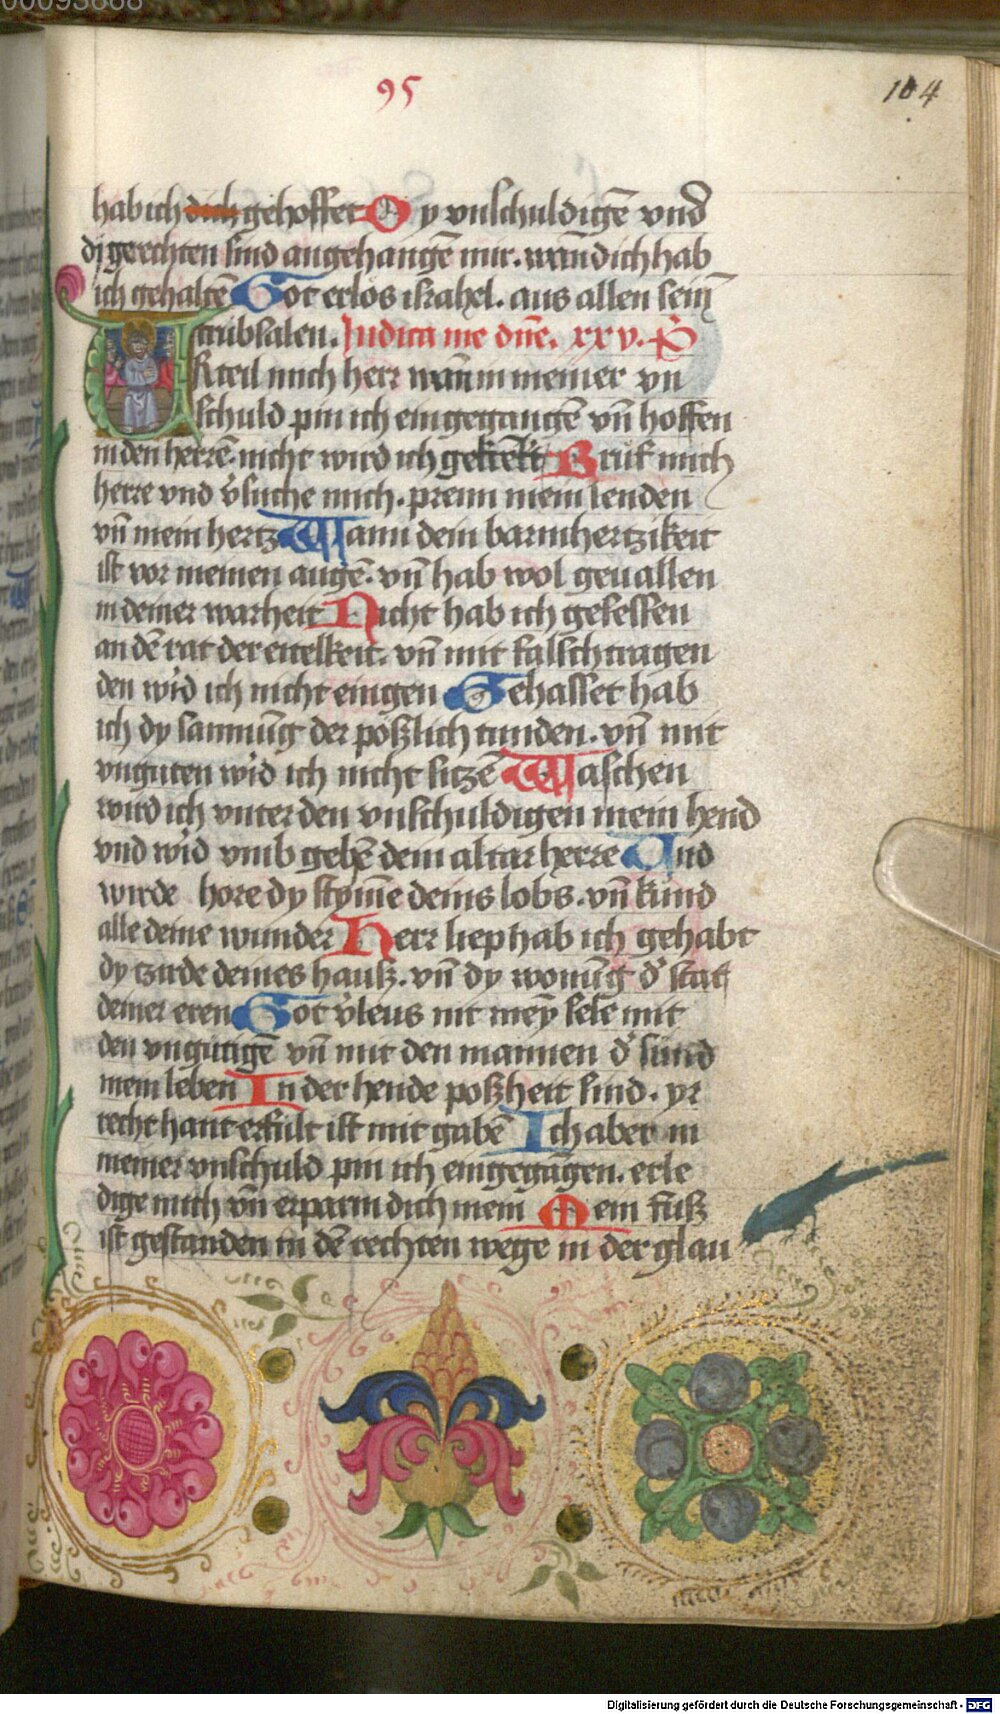 00093868
95
104
hab ich dich gehoffet Dy vnschuldigē vnd
dj gerechten sind angehangē mir. wan̄ dich hab
ich gehaltē Got erlos israhel. aus allen sein̄
trubsalen. Judica me dn̄e. xxv. P̄s
Urteil mich herr wan̄ in meiner vn
schuld pin ich eingegangē vn̄ hoffen
in den herrē. nicht wird ich gekrēkt Brüf mich
herre vnd v̓suche mich. prenn mein lenden
vn̄ mein hertz Wann dein barmhertzikeit
ist vor meinen augē. vn̄ hab wol geuallen
in deiner warheit Nicht hab ich gesessen
an dē rat der eitelkeit. vn̄ mit falsch tragen
den wi̓d ich nicht eingen Gehasset hab
ich dy samnūg der poßlich tunden. vn̄ mit
vnguten wi̓d ich nicht sitzē Waschen
wird ich vnter den vnschuldigen mein hend
vnd wi̓d vmb gehē dein altar herre Und
wirde hore dy stym̄e deins lobs. vn̄ kund
alle deine wunder Herr liep hab ich gehabt
dy tzirde deines hauß. vn̄ dy wonūg d̓ stat
deiner eren Got v̓leus nit mey̅ sele mit
den vngütigē vn̄ mit den mannen d̓ sünd
mein leben In der hende poßheit sind. yr
recht hant erfult ist mit gabē Ich aber in
meiner vnschuld pin ich eingegāgen. erle
dige mich vn̄ erparm dich mein Mein fuß
ist gestanden in dē rechten wege in der glau
Digitalisierung gefördert durch die Deutsche Forschungsgemeinschaft - DFG